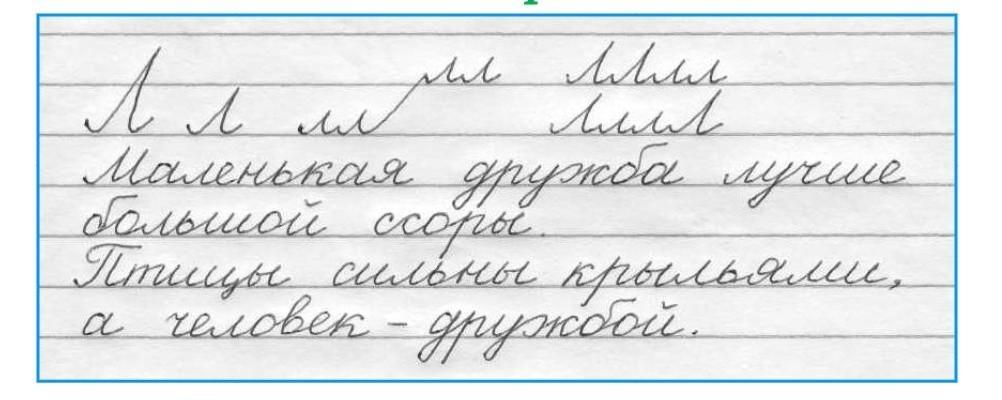 лл ЛЛлл
Л Л лл ЛллЛ
Маленькая дружба лучше
большой ссоры.
Птицы сильны крыльями,
а человек – дружбой.